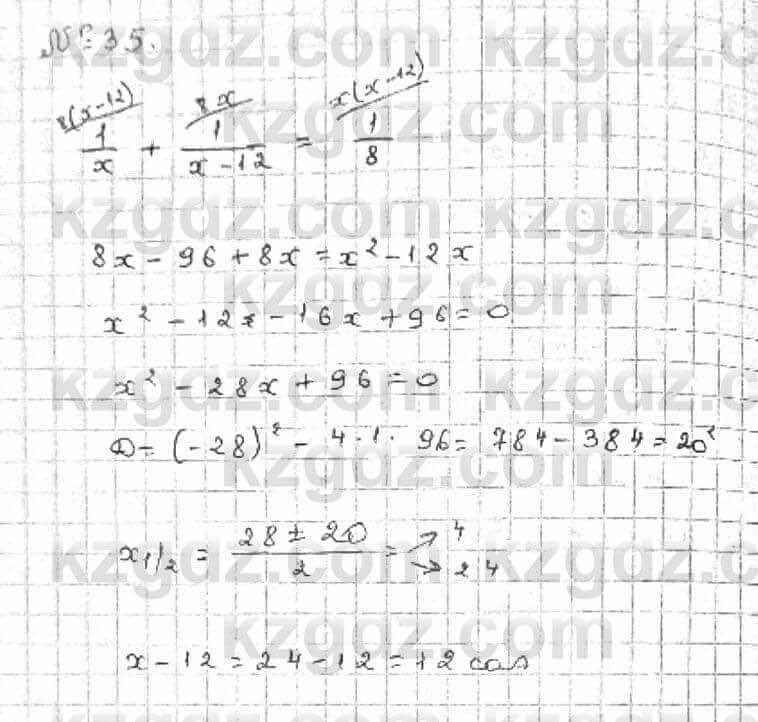 № 35.
8(x-12) 8x x(x-12)
1/x + 1/(x-12) = 1/8
8x - 96 + 8x = x² - 12x
x² - 12x - 16x + 96 = 0
x² - 28x + 96 = 0
D = (-28)² - 4·1·96 = 784 - 384 = 20²
x1/2 = (28 ± 20)/2 = 4
24
x - 12 = 24 - 12 = 12
kzgdz.com kzgdz.com
kzgdz.com
kzgdz.com kzgdz.com
kzgdz.com
kzgdz.com kzgdz.com
kzgdz.com
kzgdz.com kzgdz.com
kzgdz.com